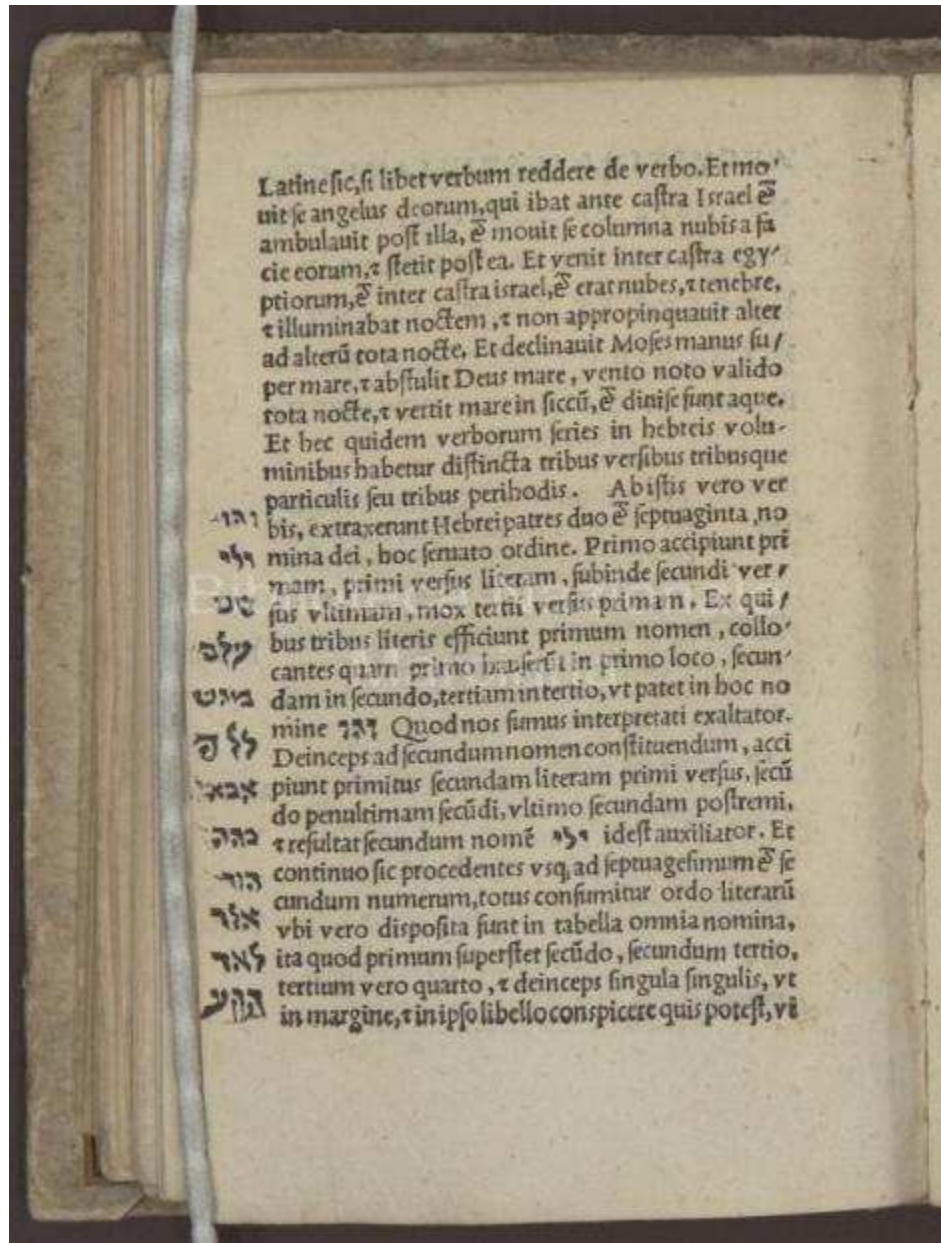 Latine sic, si libet verbum reddere de verbo. Et mo/
uit se angelus deorum, qui ibat ante castra Israel &
ambulauit post illa, & mouit se columna nubis a fa
cie eorum, ⁊ stetit post ea. Et venit inter castra egy/
ptiorum, & inter castra israel, & erat nubes, ⁊ tenebre,
⁊ illuminabat noctem, ⁊ non appropinquauit alter
ad alterũ tota nocte. Et declinauit Moses manus su/
per mare, ⁊ abstulit Deus mare, vento noto valido
tota nocte, ⁊ vertit mare in siccũ, & diuise sunt aque.
Et hec quidem verborum series in hebreis volu-
minibus habetur distincta tribus versibus tribusque
particulis seu tribus perihodis. Ab istis vero ver
והו
bis, extraxerunt Hebrei patres duo & septuaginta, no
ילי
mina dei, hoc seruato ordine. Primo accipiunt pri
mam, primi versus literam, subinde secundi ver/
סיט
sus vltimam, mox tertii versus primam. Ex qui/
bus tribus literis efficiunt primum nomen, collo/
עלם
cantes quam primo hauserũt in primo loco, secun/
מהש
dam in secundo, tertiam in tertio, vt patet in hoc no
mine והו Quod nos sumus interpretati exaltator.
ללה
Deinceps ad secundum nomen constituendum, acci
אכא
piunt primitus secundam literam primi versus, secũ
do penultimam secũdi, vltimo secundam postremi,
כהת
⁊ resultat secundum nomẽ ילי idest auxiliator. Et
continuo sic procedentes vsq; ad septuagesimum & se
הזי
cundum numerum, totus consumitur ordo literarũ
אלד
vbi vero disposita sunt in tabella omnia nomina,
לאו
ita quod primum superstet secũdo, secundum tertio,
tertium vero quarto, ⁊ deinceps singula singulis, vt
ההע
in margine, ⁊ in ipso libello conspicere quis potest,